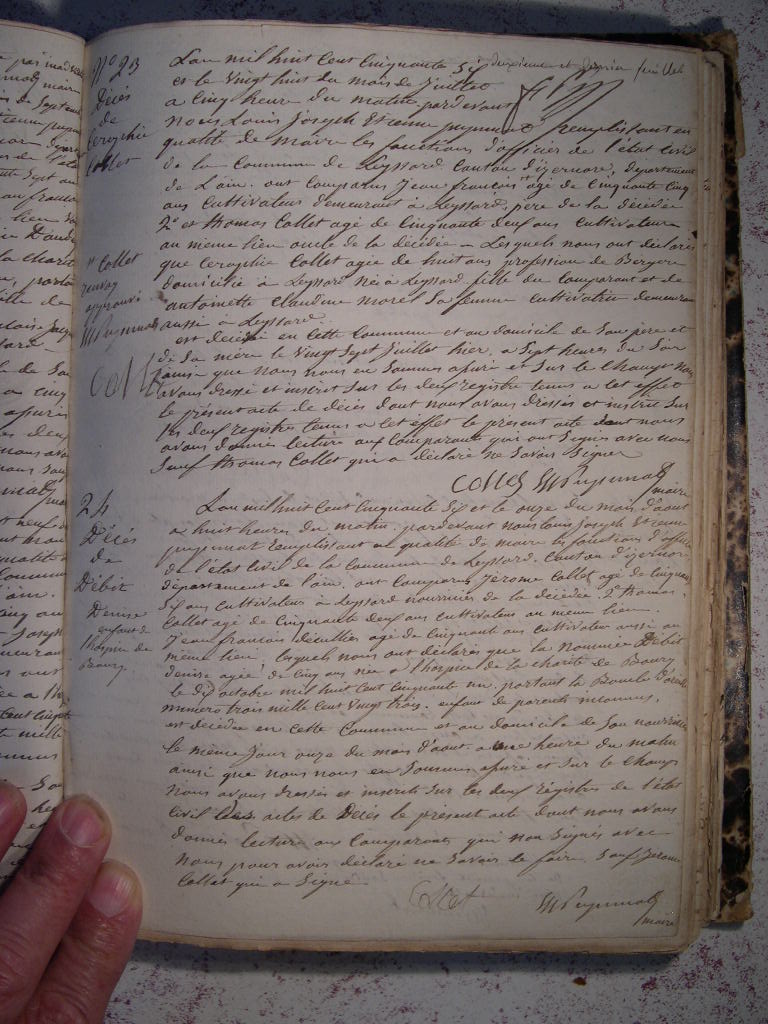 N° 23
Décès
de
Ceraphie
Collet
L'an mil huit Cent Cinquante Six deuxieme et dernier feuillet
et le Vingt huit du mois de Juillet
a Cinq heure du matin pardevant
nous Louis Joseph Etienne puynnat remplissant en
qualité de maire les fonctions d'officier de l'état Civil
de la Commune de Leyssard Canton d'izernore, Departement
de L'ain. ont Comparus Jean francois agé de Cinquante Cinq
ans Cultivateur demeurant à Leyssard, pere de la décédée
2° et thomas Collet agé de Cinquante deux ans Cultivateur
au meme lieu oncle de la décédée – Lesquels nous ont déclarés
que Ceraphie Collet agée de huit ans profession de Bergere
domiciliée à Leyssard née à Leyssard fille du Comparant et de
antoinette Claudine morel Sa femme Cultivatrice demeurant
aussi à Leyssard
est décédé en cette Commune et au domicile de Son père et
de Sa mère le Vingt Sept Juillet hier, a Sept heures du Soir
ainsi que nous nous en Sommes assuré et Sur le Champ nous
avons dressé et inscrit Sur les deux registre tenus a Cet effet
le présent acte de décès dont nous avons dressés et inscrit Sur
les deux registre tenus a Cet effet le present acte dont nous
avons donnés lecture aux Comparants qui ont Signés avec nous
Sauf thomas Collet qui a déclaré ne Savoir Signer
+ Collet
renvoy
approuvé
Collet
maire
24
Décés
de
Débit
Denise
enfant de
l'hospice de
Bourg
L'an mil huit Cent Cinquante Six et le onze du mois d'aout
a huit heures du matin, pardevant nous Louis Joseph Etienne
puynnat Remplissant en qualité de maire les fonctions d'officier
de l'état Civil de la Commune de Leyssard, Canton d'izernore
département de l'ain. ont Comparus Jérome Collet agé de Cinquante
Six ans Cultivateur à Leyssard nourricier de la décédée 2° thomas
Collet agé de Cinquante deux ans Cultivateur au meme lieu
Jean francois agé de Cinquante ans Cultivateur aussi au
même lieu. lesquels nous ont déclarés que la nommée Débit
Denise agée de Cinq ans née a l'hospice de la charité de Bourg
le dix octobre mil huit Cent Cinquante un. portant la Boucle d'oreille
numéro trois mille Cent Vingt trois. enfant de parents inconnus.
est décédée en cette Commune et au domicile de Son nourricier
le même Jour onze du mois d'aout. a une heure du matin
ainsi que nous nous en Sommes assuré et Sur le Champ
nous avons dressés et inscrits Sur les deux régistres de l'état
Civil des actes de Décés le présent acte dont nous avons
donnés lecture aux Comparants qui non Signés avec
nous pour avoir déclaré ne Savoir le faire Sauf Jerome
Collet qui a Signé
Collet
maire